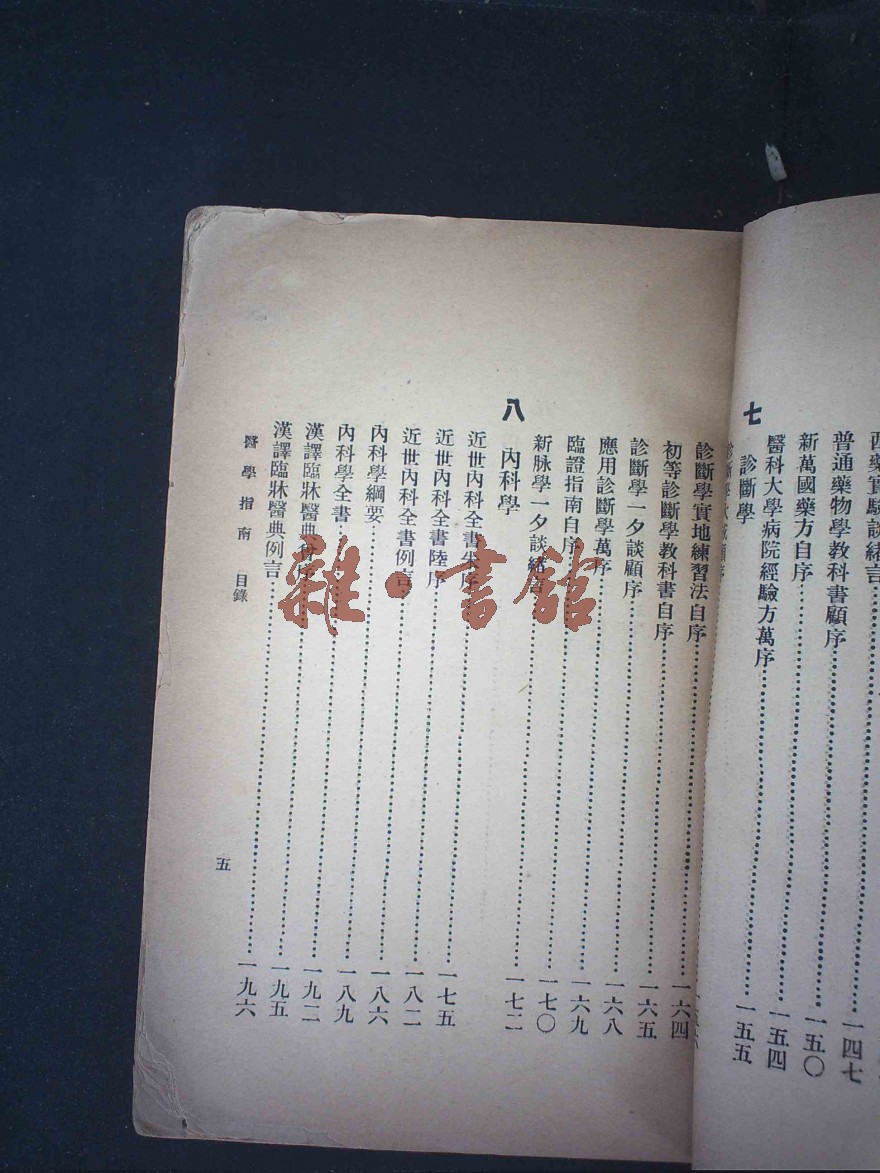 普通藥物學教科書顧序……一四七
新萬國藥方自序……一五〇
醫科大學病院經驗方萬序……一五四
七 診斷學
一五五
診斷學實地練習法自序……一六四
初等診斷學教科書自序……一六五
診斷學一夕談顧序……一六八
應用診斷學萬序……一六九
臨證指南自序……一七〇
新脉學一夕談緒言……一七二
八 內科學
近世內科全書朱序……一七五
近世內科全書陸序……一八二
近世內科全書例言……一八六
內科學綱要……一八九
內科學全書……一九二
漢譯臨牀醫典 序……一九五
漢譯臨牀醫典例言……一九六
醫學指南 目錄
五
雜·書館